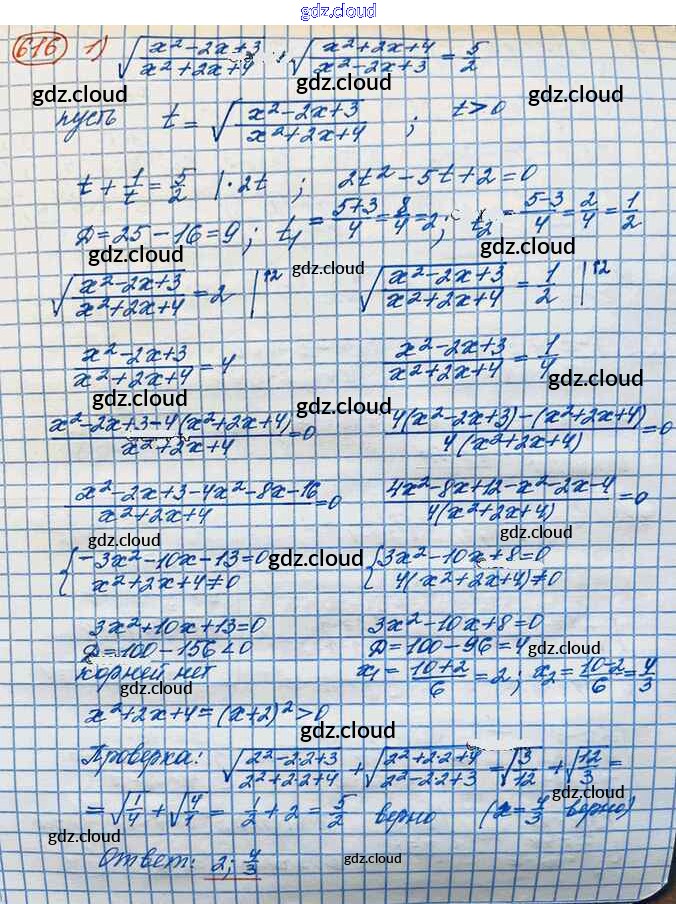 gdz.cloud
616 1) √((x²-2x+3)/(x²+2x+4)) + √((x²+2x+4)/(x²-2x+3)) = 5/2
gdz.cloud gdz.cloud gdz.cloud
пусть t = √((x²-2x+3)/(x²+2x+4)) ; t>0
t + 1/t = 5/2 |·2t ; 2t²-5t+2=0
D=25-16=9; t₁ = (5+3)/4 = 8/4 = 2; t₂ = (5-3)/4 = 2/4 = 1/2
gdz.cloud gdz.cloud gdz.cloud
√((x²-2x+3)/(x²+2x+4)) = 2 |↑2 √((x²-2x+3)/(x²+2x+4)) = 1/2 |↑2
(x²-2x+3)/(x²+2x+4) = 4 (x²-2x+3)/(x²+2x+4) = 1/4
gdz.cloud gdz.cloud gdz.cloud
(x²-2x+3-4(x²+2x+4))/(x²+2x+4) = 0 (4(x²-2x+3)-(x²+2x+4))/(4(x²+2x+4)) = 0
(x²-2x+3-4x²-8x-16)/(x²+2x+4) = 0 (4x²-8x+12-x²-2x-4)/(4(x²+2x+4)) = 0
gdz.cloud gdz.cloud gdz.cloud
{-3x²-10x-13=0 {3x²-10x+8=0
x²+2x+4≠0 4(x²+2x+4)≠0
3x²+10x+13=0 3x²-10x+8=0
D=100-156<0 D=100-96=4
gdz.cloud
корней нет x₁ = (10+2)/6 = 2; x₂ = (10-2)/6 = 4/3
gdz.cloud
x²+2x+4=(x+2)²>0
gdz.cloud
Проверка: √((2²-2·2+3)/(2²+2·2+4)) + √((2²+2·2+4)/(2²-2·2+3)) = √(3/12) + √(12/3) =
gdz.cloud gdz.cloud
= √(1/4) + √(4/1) = 1/2 + 2 = 5/2 верно (x=4/3 верно)
gdz.cloud gdz.cloud
Ответ: 2; 4/3
gdz.cloud